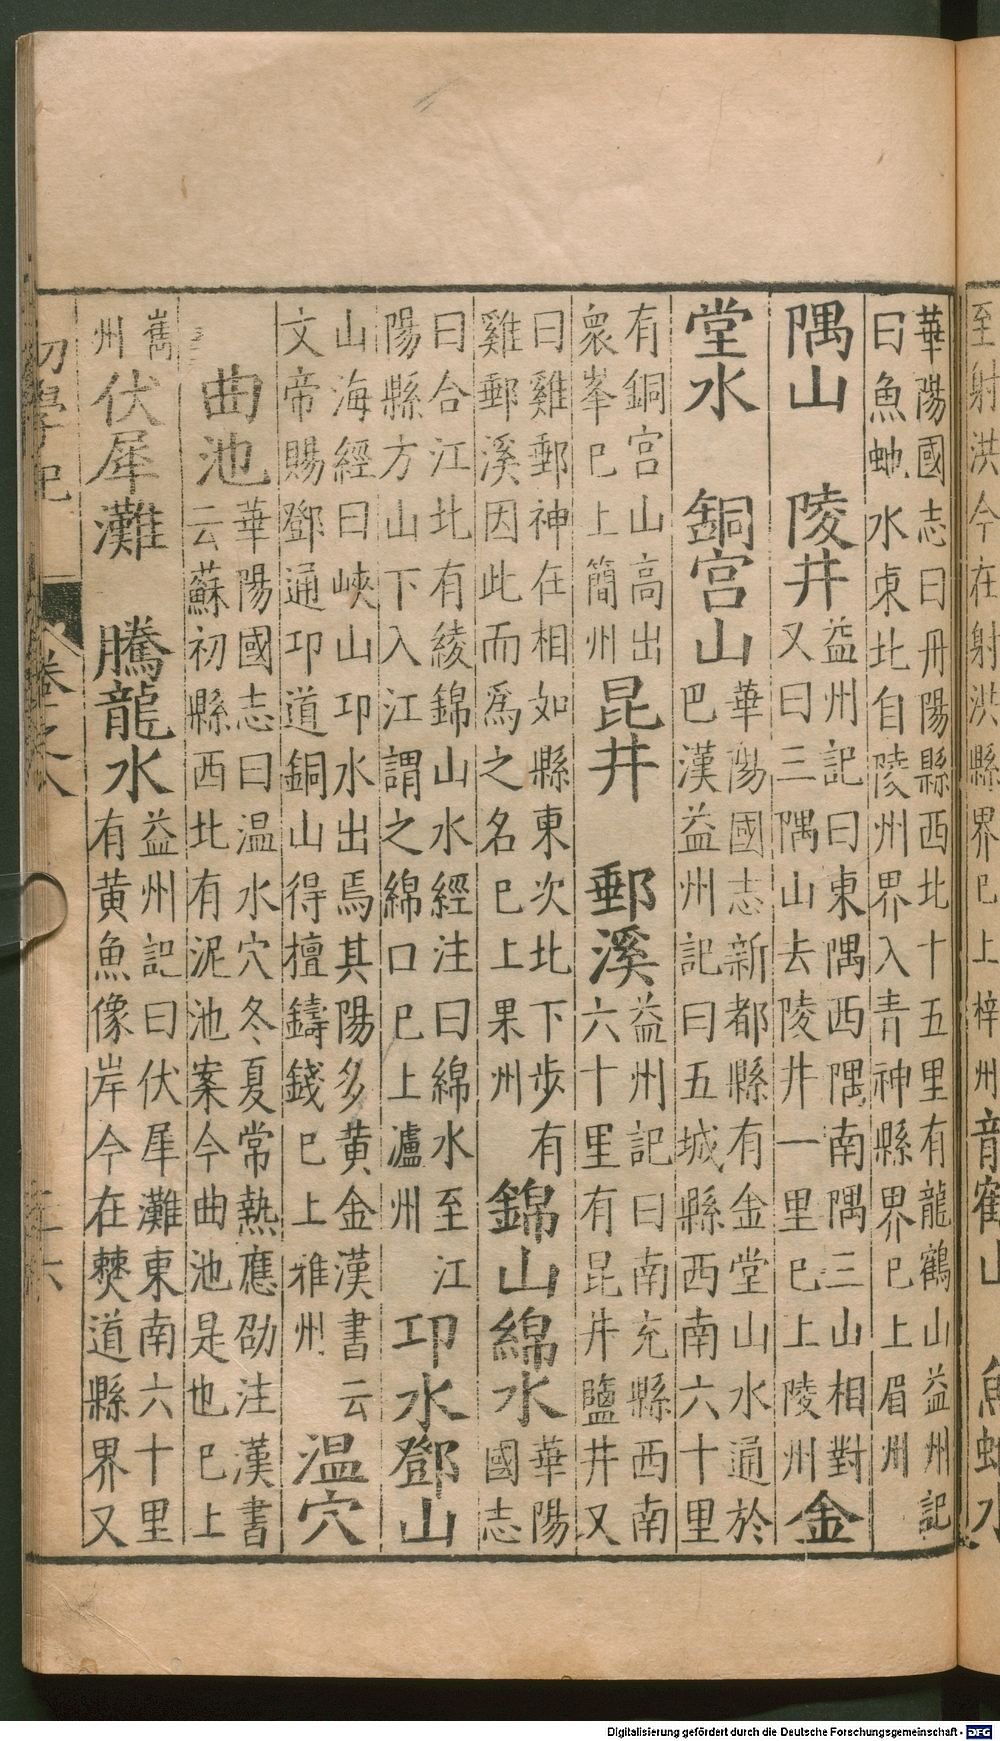 華陽國志曰丹陽縣西北十五里有龍鶴山益州記
曰魚虵水東北自陵州界入青神縣界巳上眉州
隅山　陵井
益州記曰東隅西隅南隅三山相對
又曰三隅山去陵井一里巳上陵州
金
堂水　銅宮山
華陽國志新都縣有金堂山水通於
巴漢益州記曰五城縣西南六十里
有銅宮山高出
衆峯巳上簡州
昆井　郵溪
益州記曰南充縣西南
六十里有昆井鹽井又
曰雞郵神在相如縣東次北下步有
雞郵溪因此而爲之名巳上果州
錦山綿水
華陽
國志
曰合江北有綾錦山水經注曰綿水至江
陽縣方山下入江謂之綿口巳上瀘州
邛水鄧山
山海經曰峽山邛水出焉其陽多黃金漢書云
文帝賜鄧通邛道銅山得擅鑄錢巳上雅州
温穴
曲池
華陽國志曰温水穴冬夏常熱應劭注漢書
云蘇初縣西北有泥池案今曲池是也巳上
巂
州
伏犀灘　騰龍水
益州記曰伏犀灘東南六十里
有黃魚像岸今在僰道縣界又
初學記
卷之八
至射洪今在射洪縣界巳上梓州
龍鶴山　魚虵水
Digitalisierung gefördert durch die Deutsche Forschungsgemeinschaft - DFG